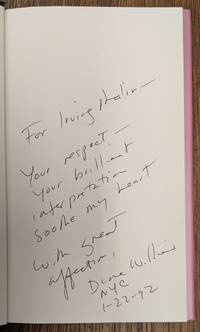 For Irving Malin—
Your respect—
Your brilliant
interpretation
soothe my heart
with great
affection,
Diane Williams
NYC
1-22-92